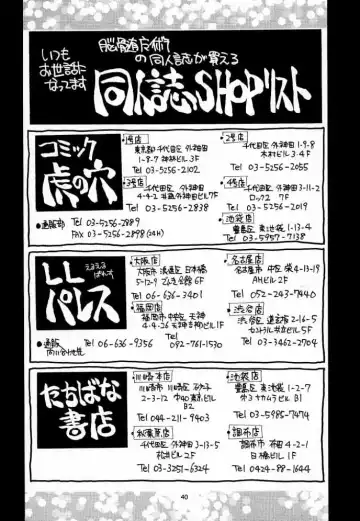 いつも
お世話に
なってます
脳髄直撃術
の同人誌が買える
同人誌SHOPリスト
コミック
虎の穴
1号店
東京都千代田区 外神田
1-8-7 神林ビル3F
Tel 03-5256-2102
2号店
千代田区 外神田1-9-8
木村ビル3-4F
Tel 03-5256-2055
3号店
千代田区 外神田
Tel 03-5256-2838
4号店
千代田区 外神田3-11-2
ロック2 7F
Tel 03-5256-2019
●通販部
Tel 03-5256-2889
FAX 03-5256-2898
池袋店
豊島区 東池袋1-13-4
Tel 03-5957-7138
LL
パレス
大阪店
大阪市 浪速区 日本橋
5-12-9 でんき会館6F
Tel 06-636-3401
名古屋店
名古屋市 中区 栄4-13-19
AHビル2F
Tel 052-243-7840
福岡店
福岡市 中央区 天神
4-4-26 天神吉野ビル1F
Tel 092-761-1530
渋谷店
渋谷区 道玄坂2-16-5
Tel 03-3462-2704
●通販
Tel 06-636-9356
たちばな
書店
川崎本店
川崎市 川崎区
2-3-12 中40東京ビル
B2
Tel 044-211-9403
池袋店
豊島区 東池袋1-2-7
B1
Tel 03-5985-7474
秋葉原店
千代田区 外神田3-13-5
松井ビル2F
Tel 03-3251-6324
調布店
調布市 布田4-2-1
日橋ビル1F
Tel 0424-88-1644
40